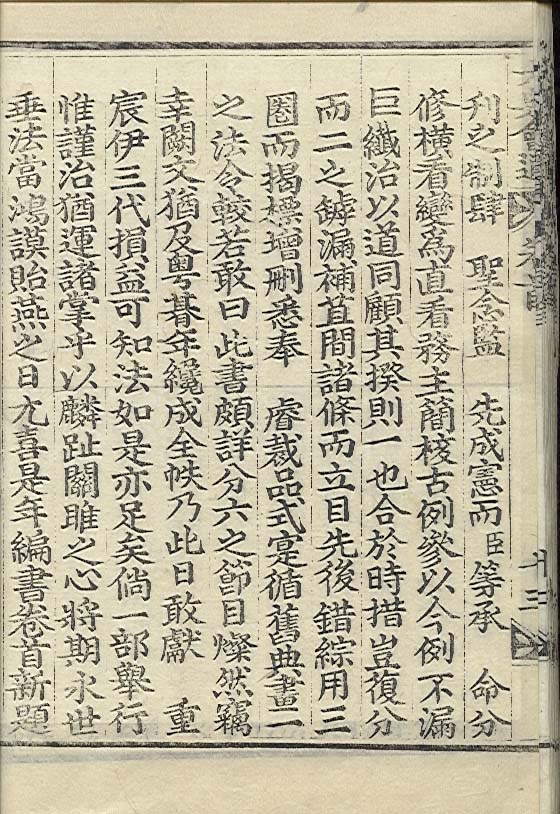 刋之制肆 聖念監 先成憲而臣等承 命分
修橫看變爲直看務主簡核古例參以今例不漏
巨纖治以道同顧其揆則一也合於時措豈復分
而二之罅漏補苴間諸條而立目先後錯綜用三
圈而揭標增刪悉奉 睿裁品式寔循舊典畫二
之法令較若敢曰此書頗詳分六之節目燦然竊
幸闕文猶及粤朞年纔成全帙乃此日敢獻 重
宸伊三代損益可知法如是亦足矣倘一部舉行
惟謹治猶運諸掌乎以麟趾關雎之心將期永世
垂法當鴻謨貽燕之日尤喜是年編書卷首新題